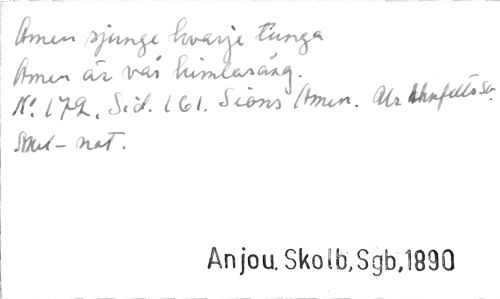 Amen sjunge hvarje tunga
Amen är vår himlasång.
No. 172. Sid. 161. Sions Amen. Ur Ahnfelts Sr.
not.
Anjou. Skolb, Sgb, 1890